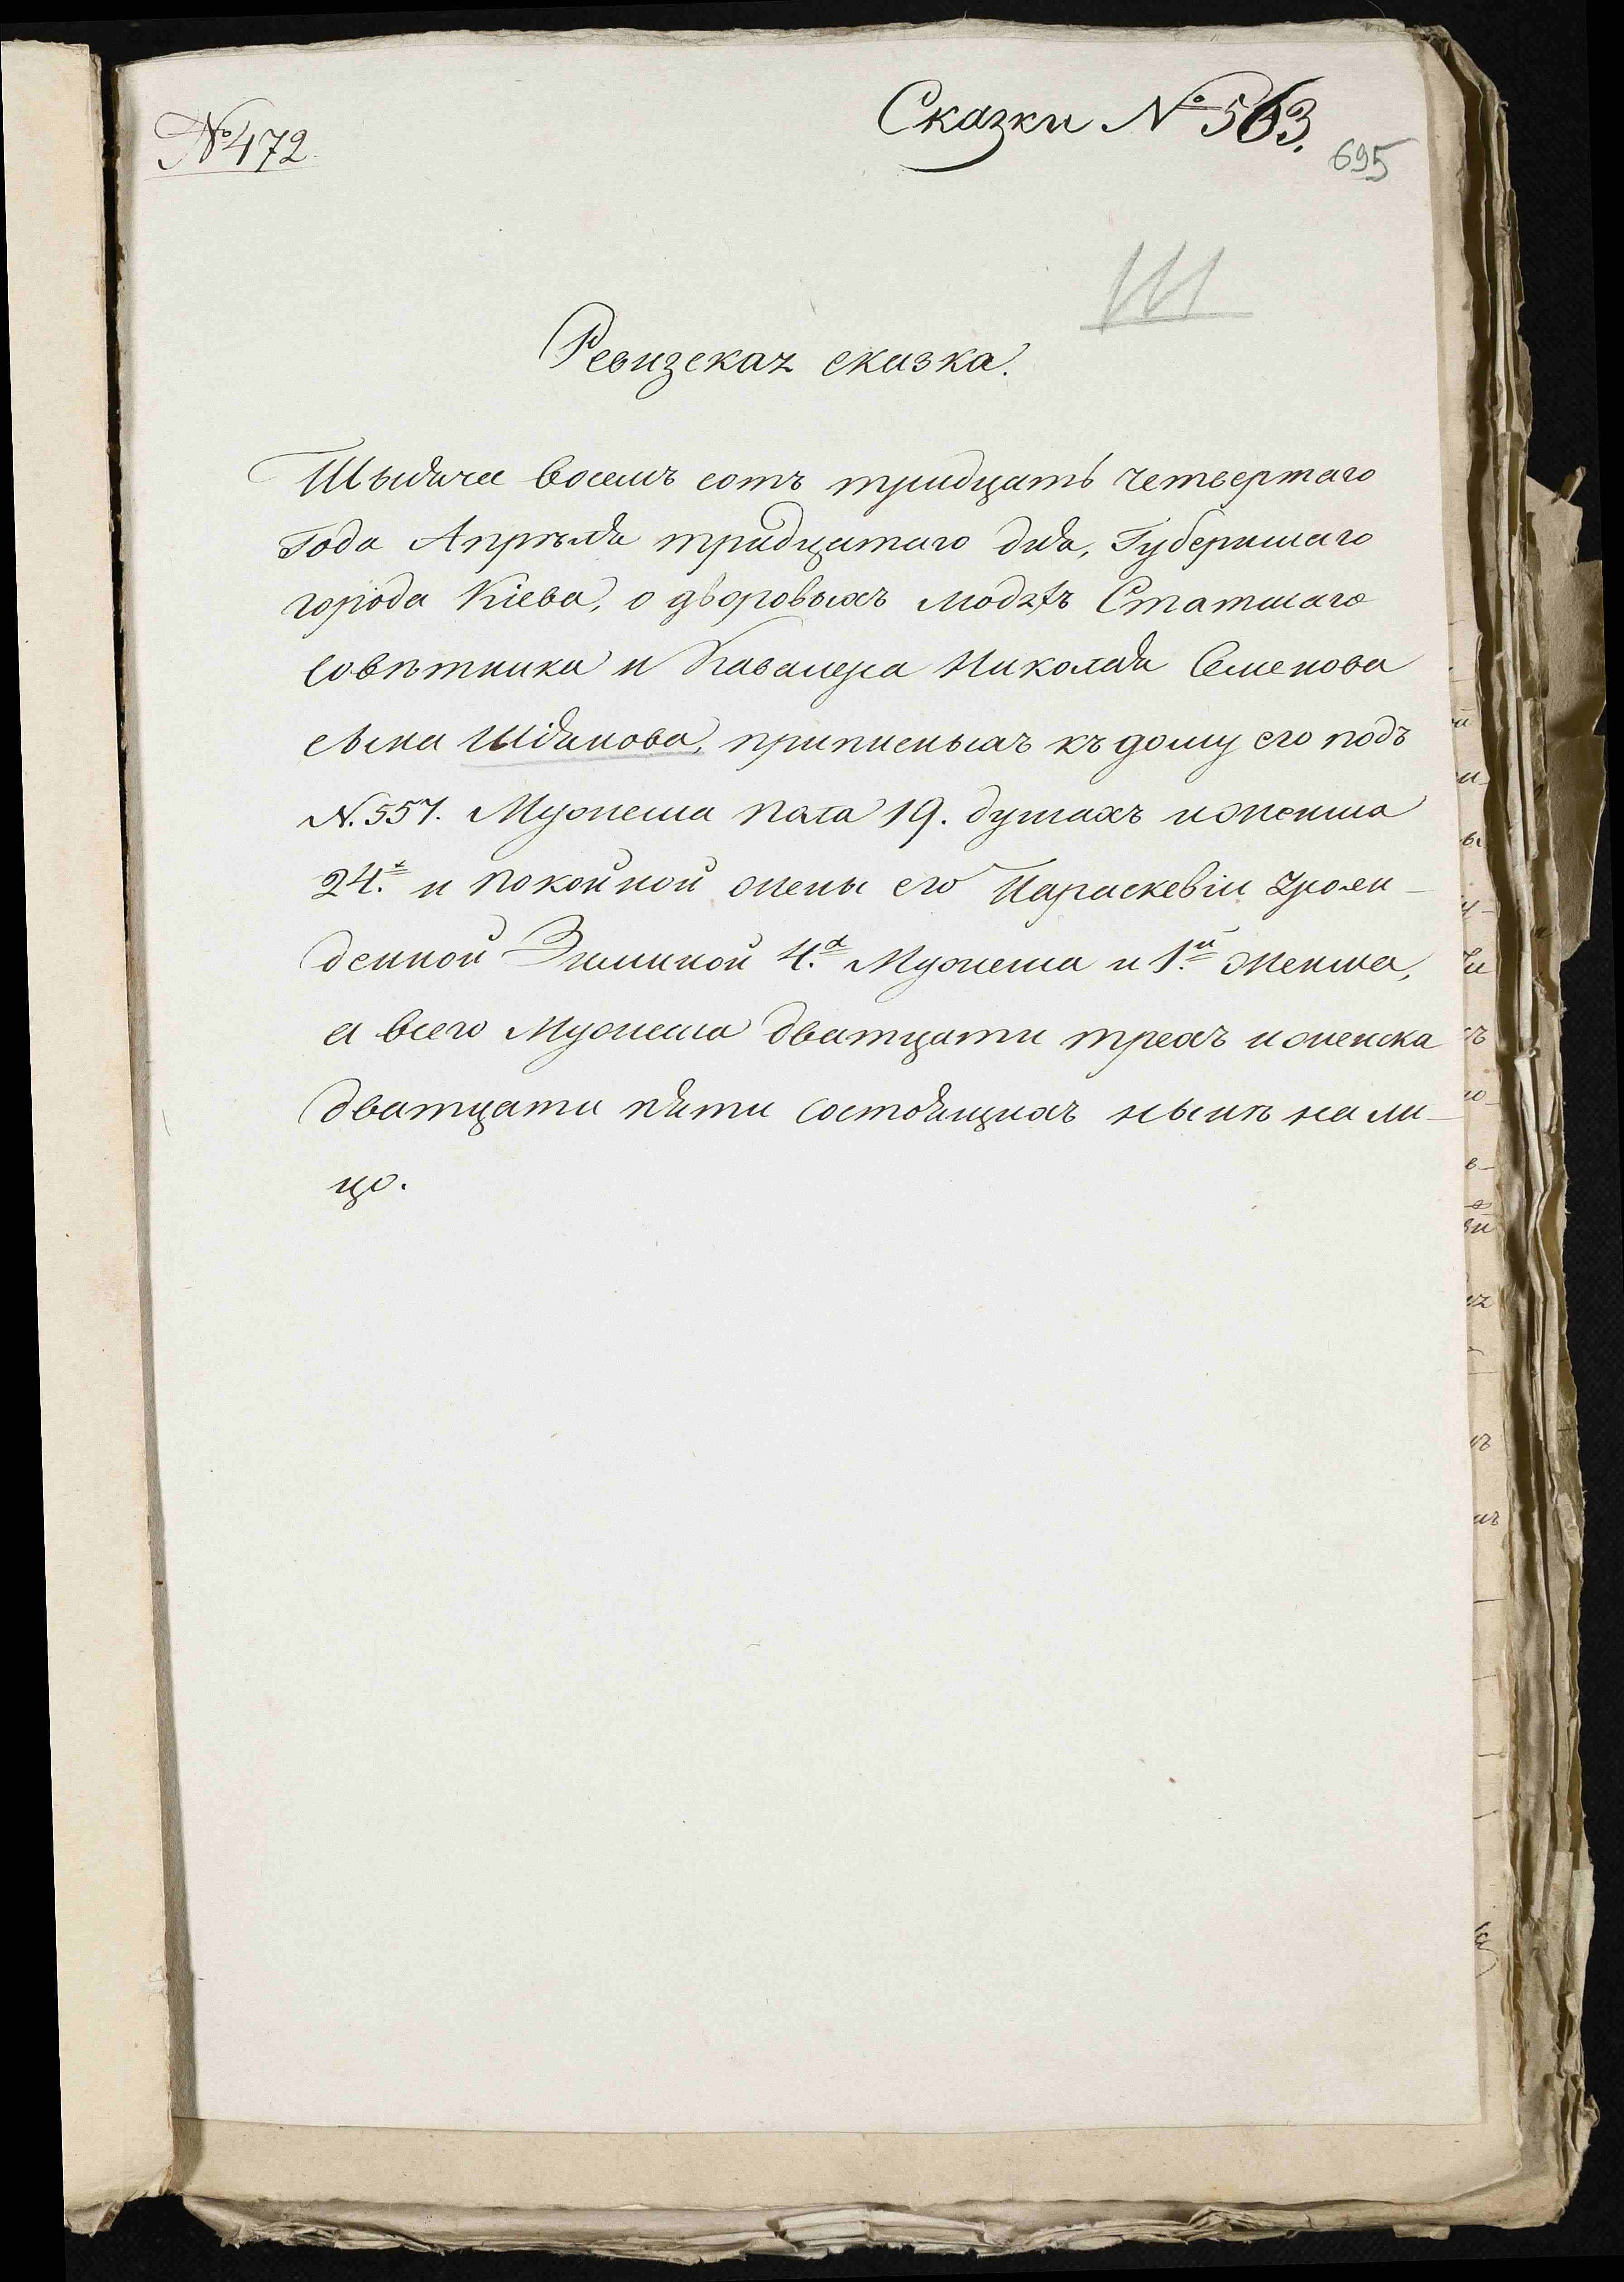 № 472.
Сказки № 563.
695
Ш
Ревизская сказка.
Тысяча восемъ сотъ тридцать четвертаго
Года Апрѣля тридцатаго дня, Губернскаго
города Кіева, о дворовыхъ людяхъ Статскаго
Совѣтника и Кавалера Николая Семенова
сына Шіянова, приписныхъ къ дому его подъ
N. 557. Мужеска пола 19. душахъ и женска
24.х и покойной жены его Параскевіи урожи-
денной 4.х Мужеска и 1.й женска,
а всего Мужеска дватцати трехъ и женска
дватцати пяти состоящихъ нынѣ на ли-
цо.